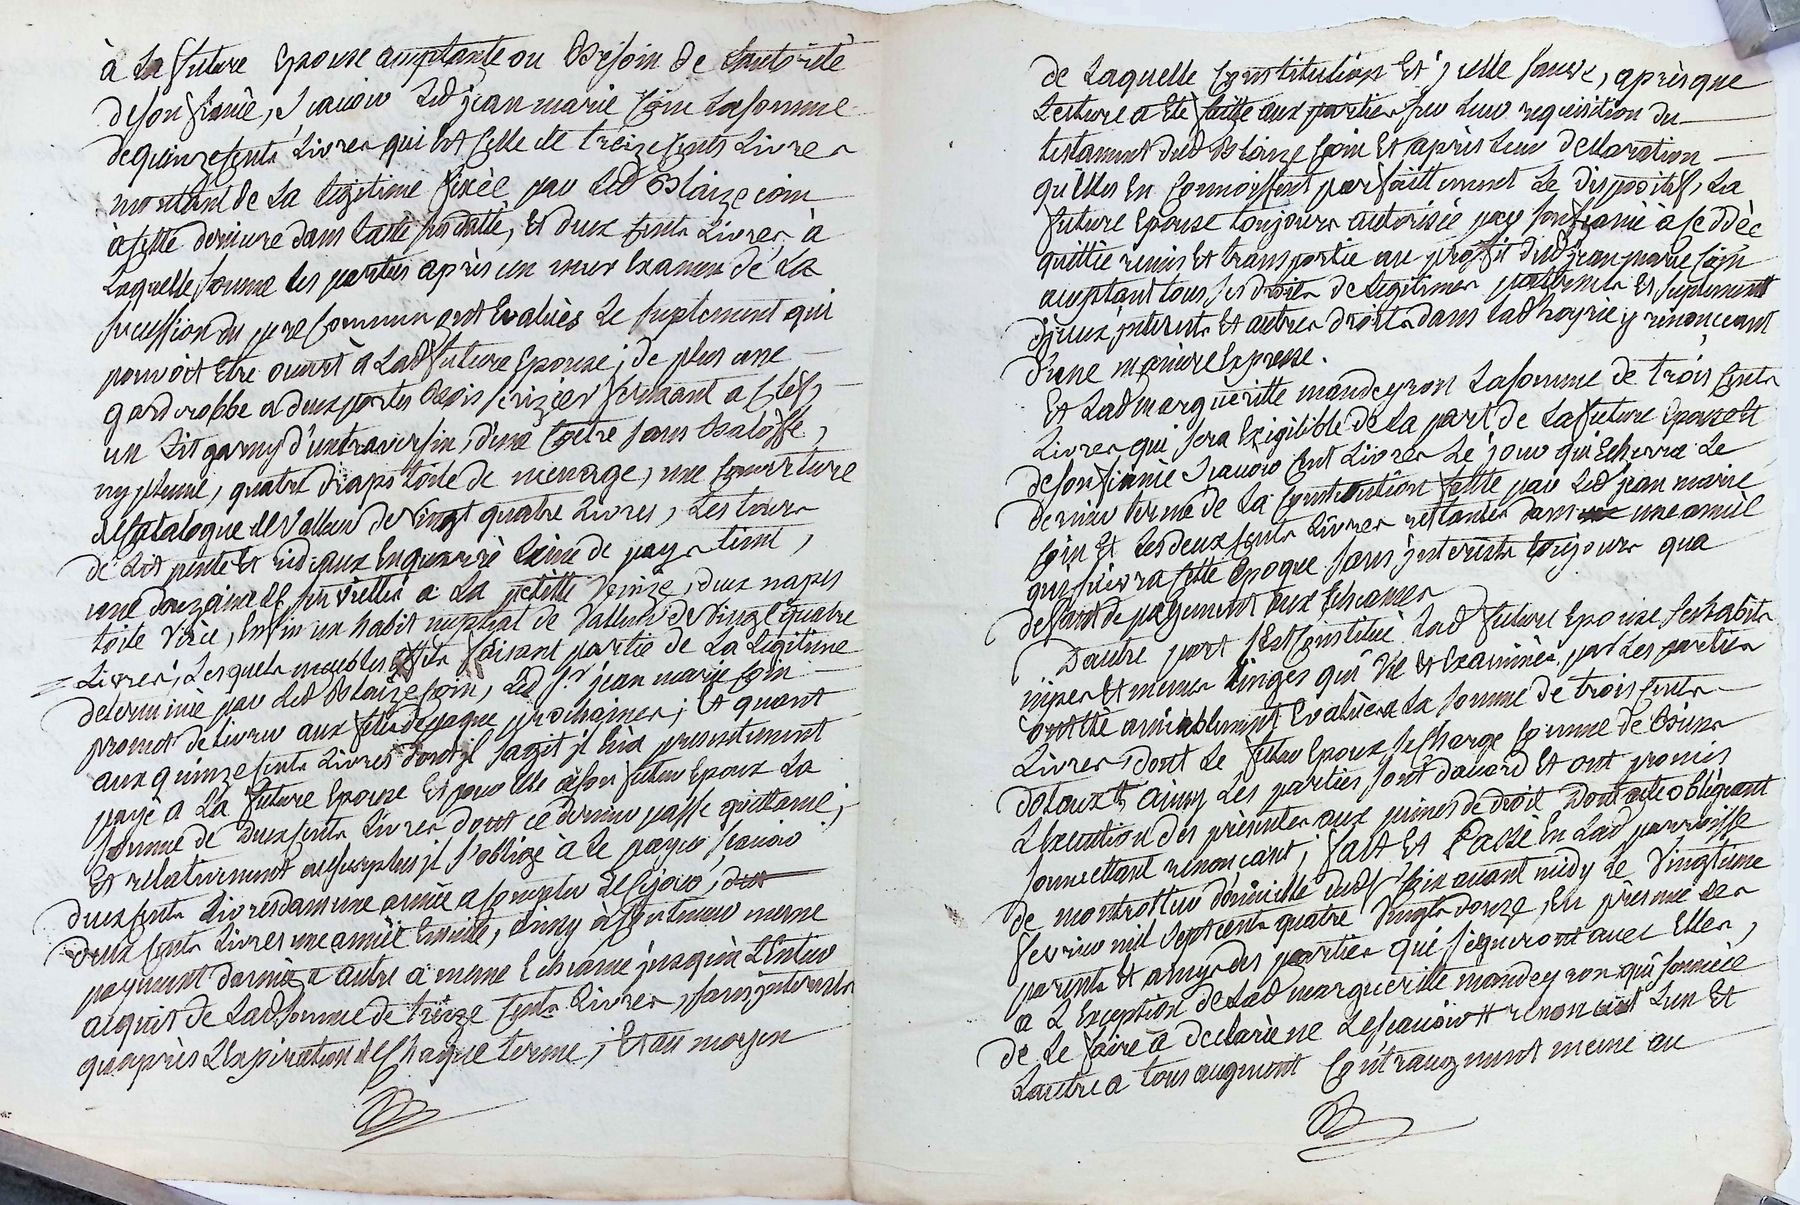 à la future Epouse acceptante ou besoin de lautorité
de son fiancé, scavoir led jean marie Coin la somme
de quinze cents Livres qui Est Celle de treize Cents Livres
montant de la legitime fixée par led Blaize coin
à cette derniere dans lacte susdatté, et deux Cents Livres à
Laquelle somme les parties après un meur Examen de la
succession du pere Commun ont Evalués Le suplement qui
pouvoit Etre ouvert à Lad future Epouse ; de plus une
garderobbe a deux portes bois serizier fermant a Clef,
un Lit garny d'un traversin, d'une Coitre sans baloffe,
ny plume, quatre draps toile de menage, une Couverture
de Catalogne de Valleur de vingt quatre Livres, Les tours
de Lit pente Et rideaux En quarré laine de pays teint,
une douzaine de serviettes a la petitte Venize, deux napes
toile ritée, Enfin un habit nuptial de Valleur de vingt quatre
Livres, Lesquels meubles Effets faisant partie de la Legitime
determinée par led Blaize Coin, led Sr jean marie Coin
promet de livrer aux fetes de paque prochaines ; et quant
aux quinze Cents Livres dont il sagit il En a presentement
payé a la future Epouse Et pour Elle à son futur Epoux La
somme de deux Cents Livres dont ce dernier passe quittance ;
Et relativement au surplus il s'oblige à le payer scavoir
deux Cents Livres dans une année a Compter de Cejour,
deux Cents Livres une année Ensuitte, ainsy à Continuer meme
payement dannée a autre a meme Echeance jusqu'à L'Entier
acquit de Lad somme de treize Cents Livres, sans interests
qu'après L'Expiration de Chaque terme ; Et au moyen
de Laquelle Constitution Et jcelle sauve, après que
Lecture a Eté faitte aux parties sur leur requisition du
testament dud Blaize Coin Et après leur declaration
qu'elles En Connoissent parfaittement Le dispositif, La
future Epouse toujours autorisée par son fiancé à Ceddé
quitté remis Et transporté au proffit dud jean marie Coin
acceptant tous ses droits de legitimes paternels Et suplement
d'jceux, interests Et autres droits dans lad hoyrie y renonceant
d'une maniere Expresse.
Et Lad margueritte mandeyron La somme de trois Cents
Livres qui sera Exigible de la part de la future Epouse Et
de son fiancé scavoir Cent Livres Le jour qu'Echerra Le
dernier terme de la Constitution faitte par led jean marie
Coin Et les deux Cents Livres restantes dans une année
qui suivra Cette Epoque sans jnterests toujours qua
deffaut de payement aux Echeances
Dautre part sest Constitué Lad future Epouse ses habits
nipes Et menus linges qui Vu Et Examinés par Les parties
ont Eté amiablement Evalués a La somme de trois Cents
Livres, dont Le futur Epoux se Charge Comme de biens
dotaux Et ainsy Les parties sont daccord Et ont promis
L'Execution des presentes aux peines de droit Dont acte obligeant
soumettant renonçant, fait Et Passé En Lad parroisse
de montrottier domicille dud Sr Coin avant midy Le vingtieme
fevrier mil sept cents quatre vingts douze, En presence des
parents Et amys des parties qui signeront avec Elles,
a L'Exception de Lad margueritte mandeyron qui sommée
de Le faire a declaré ne Le scavoir Et renoncent Lun Et
Lautre a tous augment Contraugment meme au